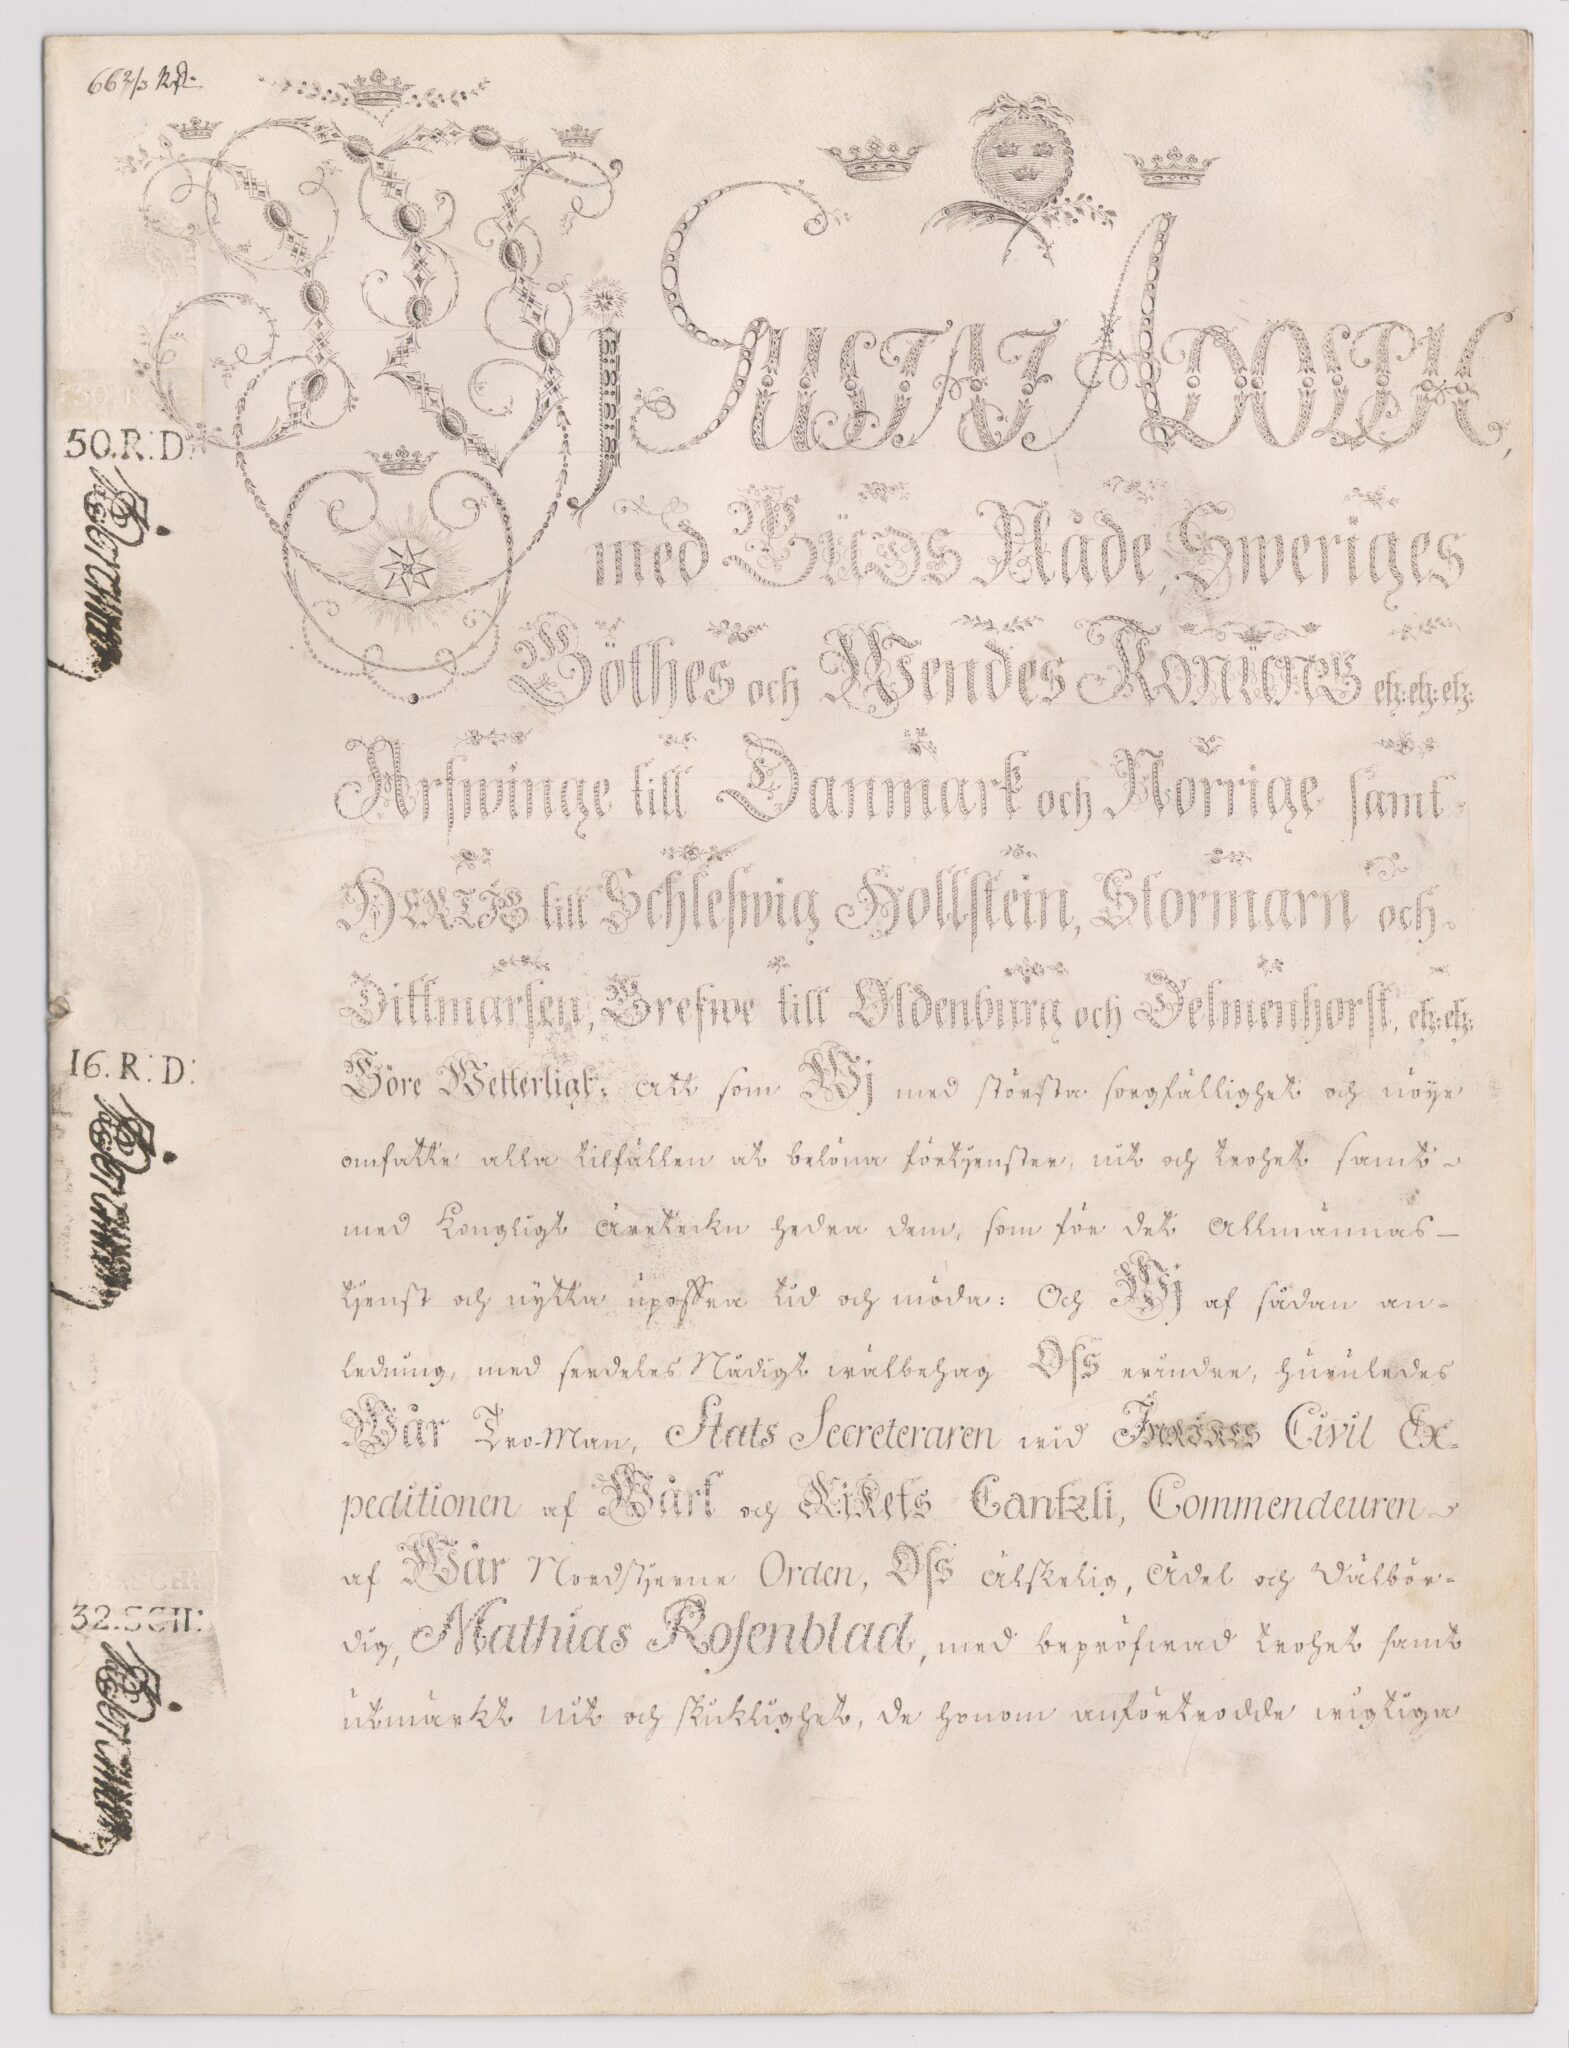 66 2/3 Rdr.
Wi GUSTAF ADOLPH,
med GUDS Nåde, Sweriges
Göthes och Wendes KONUNG etz: etz: etz:
Arfwinge till Danmark och Norrige samt
HERTIG till Schleswig Hollstein, Stormarn och
Dittmarsen, Grefwe till Oldenburg och Delmenhorst, etz: etz:
Göre Wetterligt: att som Wj med största sorgfällighet och nöye
omfatte alla tilfällen at belöna förtjenster, nit och trohet samt
med Kongligt äretekn hedra dem, som för det Allmännas
tjenst och nytta upoffra tid och möda: Och Wj af sådan an-
ledning, med serdeles Nådigt wälbehag Oss erindre, huruledes
Wår Tro-Man, Stats Secreteraren wid INRIKES Civil Ex-
peditionen af Wårt och Rikets Cantzli, Commendeuren
af Wår Nordstjerne Orden, Oss älskelig, Ädel och Wälbör-
dig, Mathias Rosenblad, med bepröfwad trohet samt
utmärkt nit och skicklighet, de honom anförtrodde wigtiga
50. R: D:
16. R: D:
32. SCH: